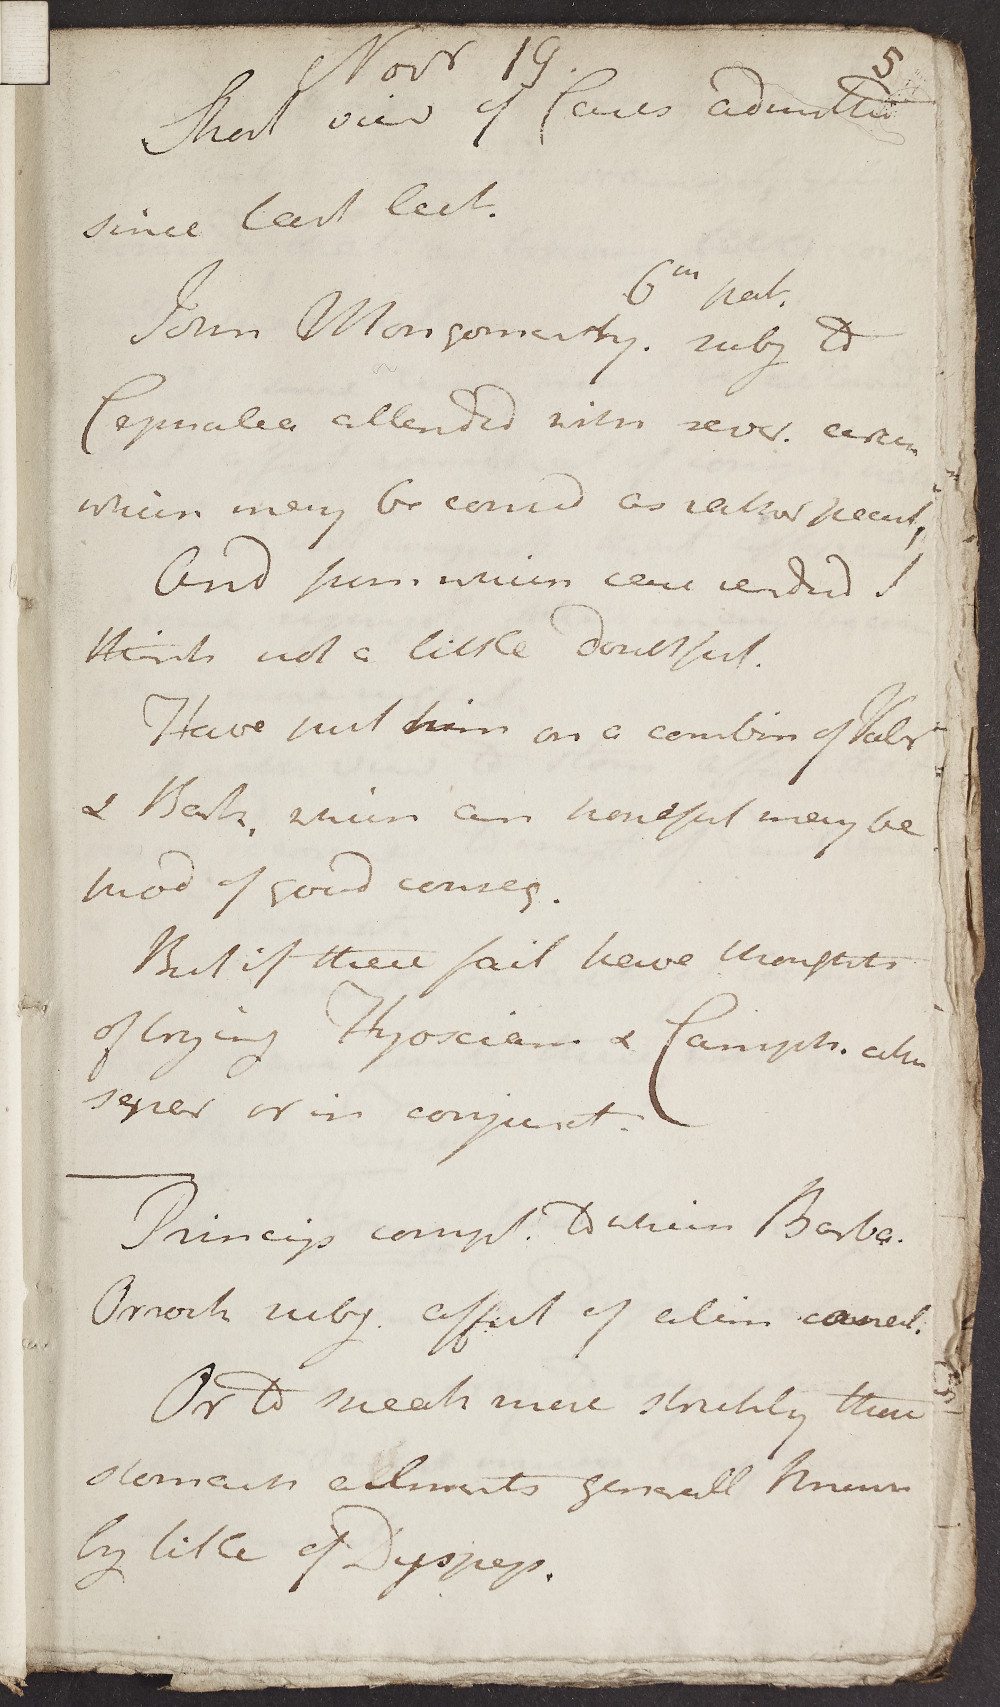 5
Novr 19.
Short view of Cases admitted
since last lect.
6th pat.
John Montgomerty. subj to
Cephalea attended with sever. circum
which may be consid as rather pecul,
And from which case rendrd I
think not a little doubtful.
Have put him on a combin of Valer
& Bark, which am hopeful may be
prod of good conseq.
But if these fail have thoughts
of trying Hyosciam & Camph. eithr
seper or in conjunct.
Princip compl. to which Barba.
Orrock subj. affect of alim canal.
Or to speak more strictly those
stomach ailments generall known
by title of Dyspeps.